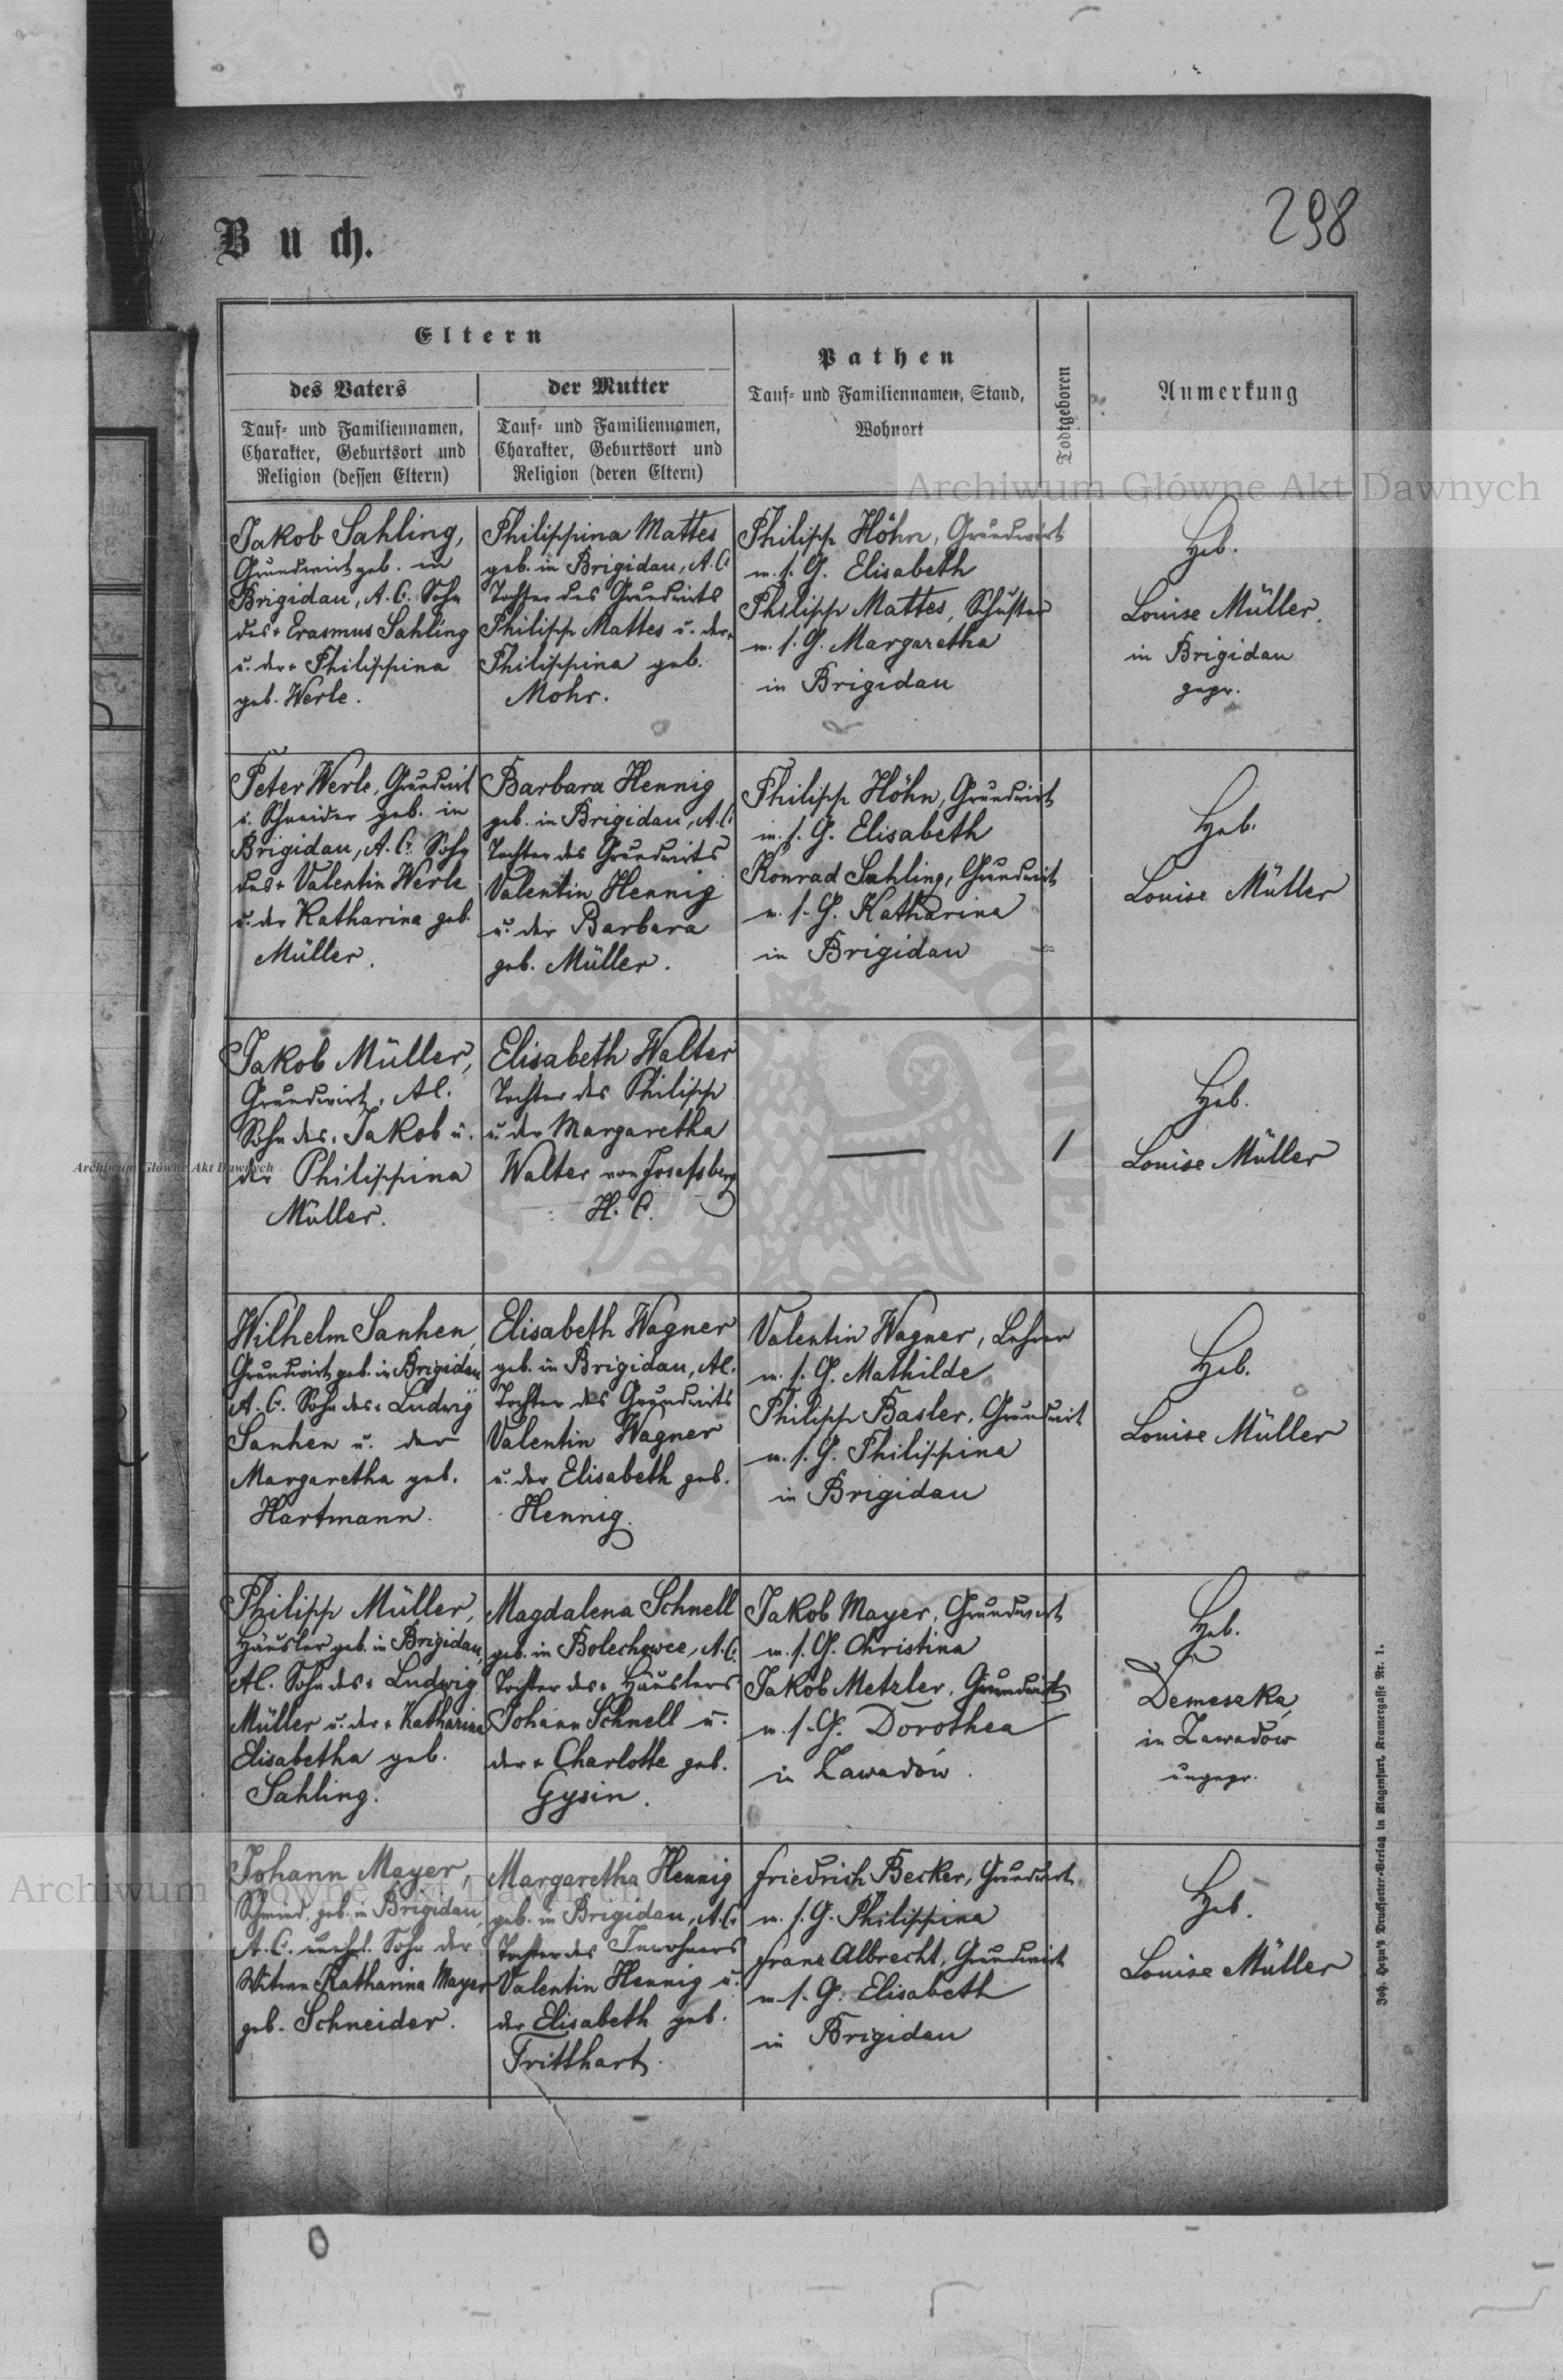 298
Buch.
Eltern
des Vaters
Tauf- und Familiennamen,
Charakter, Geburtsort und
Religion (dessen Eltern)
der Mutter
Tauf- und Familiennamen,
Charakter, Geburtsort und
Religion (deren Eltern)
Pathen
Tauf- und Familiennamen, Stand,
Wohnort
Todtgeboren
Anmerkung
Archiwum Główne Akt Dawnych
Jakob Sahling,
Grundwirt geb. in
Brigidau, A. C. Sohn
des + Erasmus Sahling
u. der + Philippina
geb. Werle.
Philippina Mattes
geb. in Brigidau, A. C.
Tochter des Grundwirts
Philipp Mattes u. der +
Philippina geb.
Mohr.
Philipp Höhn, Grundwirt
m. s. G. Elisabeth
Philipp Mattes, Schuster
m. s. G. Margaretha
in Brigidau
Heb.
Louise Müller
in Brigidau
gepr.
Peter Werle, Grundwirt
u. Schneider geb. in
Brigidau, A. C. Sohn
des + Valentin Werle
u. der Katharina geb.
Müller.
Barbara Hennig
geb. in Brigidau, A. C.
Tochter des Grundwirts
Valentin Hennig
u. der Barbara
geb. Müller.
Philipp Höhn, Grundwirt
m. s. G. Elisabeth
Konrad Sahling, Grundwirt
m. s. G. Katharina
in Brigidau
Heb.
Louise Müller
Jakob Müller,
Grundwirt, AC.
Sohn des Jakob u.
der Philippina
Müller.
Elisabeth Walter
Tochter des Philipp
u. der Margaretha
Walter von Josefsberg
H. C.
—
1
Heb.
Louise Müller
Archiwum Główne Akt Dawnych
Wilhelm Sanhen,
Grundwirt geb. in Brigidau
A. C. Sohn des + Ludwig
Sanhen u. der
Margaretha geb.
Hartmann.
Elisabeth Wagner
geb. in Brigidau, AC.
Tochter des Grundwirts
Valentin Wagner
u. der Elisabeth geb.
Hennig.
Valentin Wagner, Lehrer
m. s. G. Mathilde
Philipp Basler, Grundwirt
m. s. G. Philippina
in Brigidau
Heb.
Louise Müller
Philipp Müller,
Häusler geb. in Brigidau,
AC. Sohn des + Ludwig
Müller u. der + Katharina
Elisabetha geb.
Sahling.
Magdalena Schnell
geb. in Bolechowce, A. C.
Tochter des + Häuslers
Johann Schnell u.
der + Charlotte geb.
Gysin.
Jakob Mayer, Grundwirt
m. s. G. Christina
Jakob Metzler, Grundwirt
m. s. G. Dorothea
in Zawadów.
Heb.
Demeszka,
in Zawadów
ungepr.
Johann Mayer,
Schmied, geb. in Brigidau,
A. C. unehl. Sohn der
Witwe Katharina Mayer
geb. Schneider.
Margaretha Hennig
geb. in Brigidau, A. C.
Tochter des Inwohners
Valentin Hennig u.
der Elisabeth geb.
Tritthart.
Friedrich Becker, Grundwirt
m. s. G. Philippina
Franz Albrecht, Grundwirt
m. s. G. Elisabeth
in Brigidau
Heb.
Louise Müller
Archiwum Główne Akt Dawnych
Joh. Heyn's Drucksorten-Verlag in Klagenfurt, Kramergasse Nr. 1.